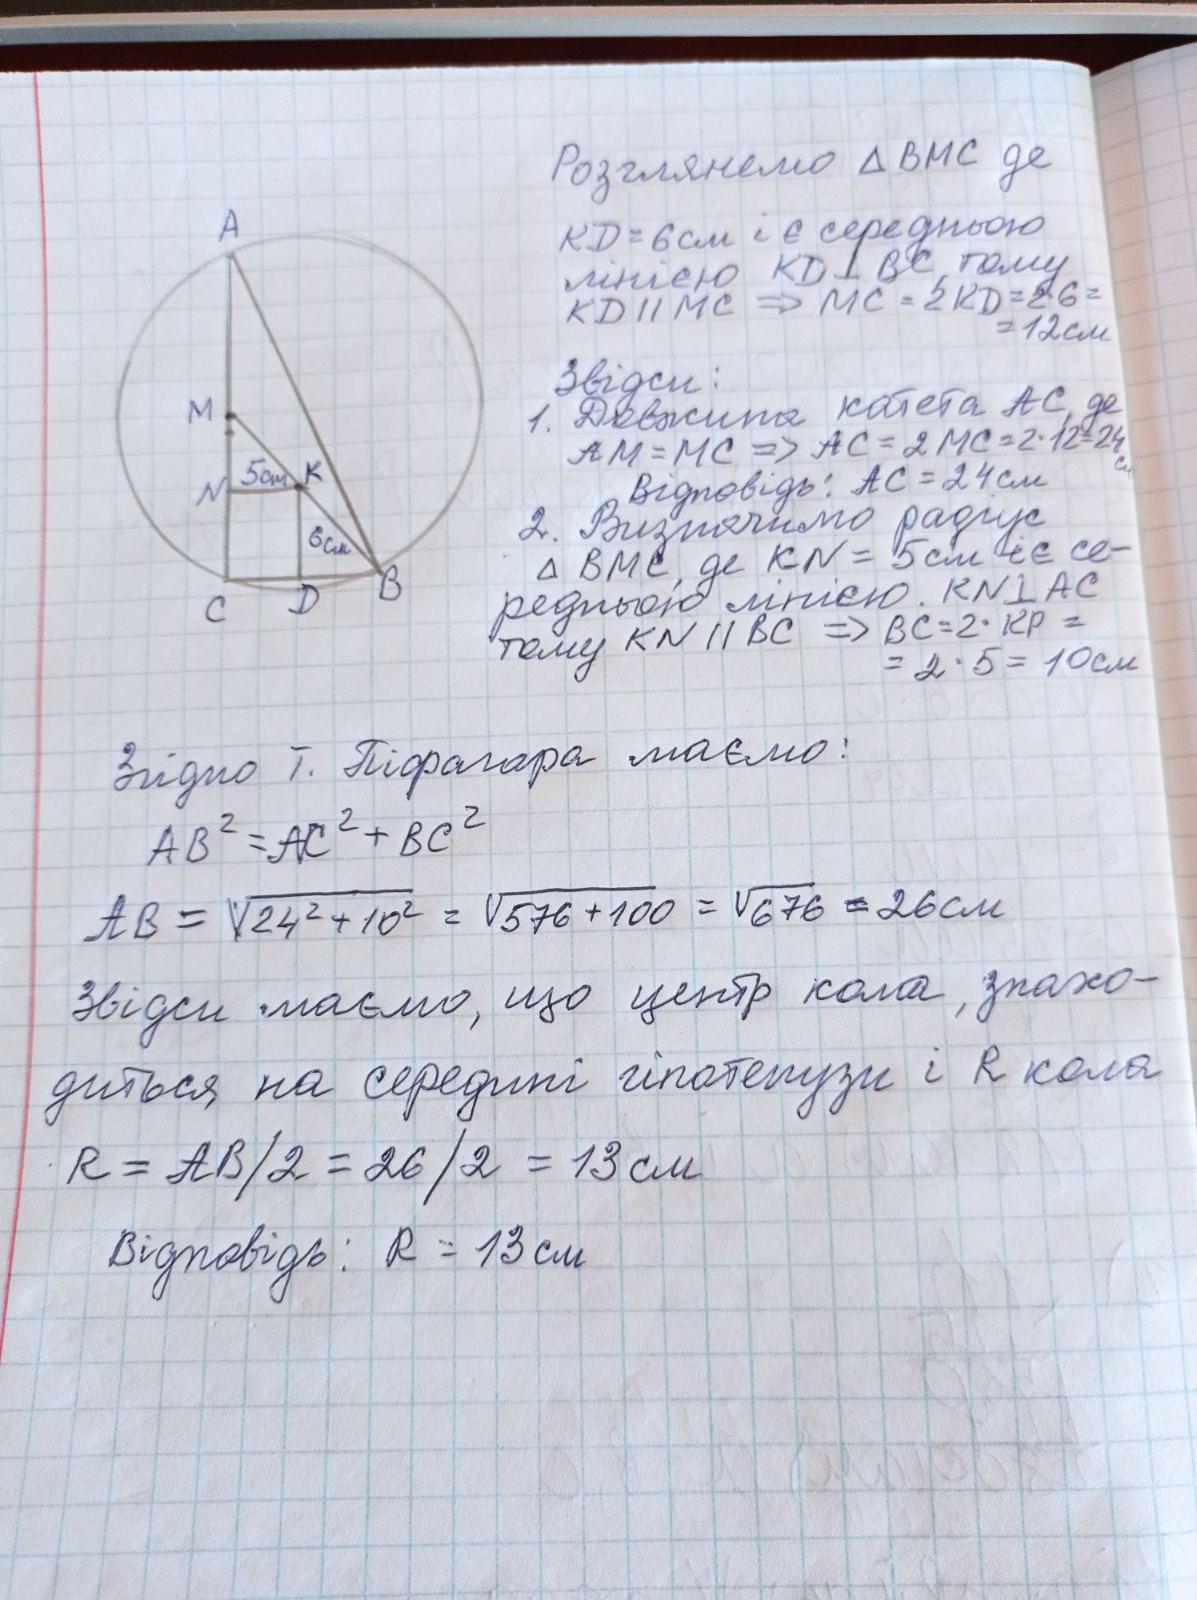 Розглянемо △ BMC де
KD = 6 см і є середньою
лінією KD⊥BC, тому
KD || MC => MC = 2KD = 2·6 =
= 12 см
Звідси:
1. Довжина катета AC, де
AM = MC => AC = 2MC = 2·12=24
см
Відповідь: AC = 24 см
2. Визначимо радіус
△ BMC, де KN = 5 см і є се-
редньою лінією. KN⊥AC
тому KN || BC => BC = 2·KP =
= 2·5 = 10 см
A
M
N
5 см
K
6 см
C
D
B
Згідно Т. Піфагара маємо:
AB² = AC² + BC²
AB = √24² + 10² = √576 + 100 = √676 = 26 см
Звідси маємо, що центр кола, знахо-
диться, на середині гіпотенузи і R кола
R = AB/2 = 26/2 = 13 см
Відповідь: R = 13 см